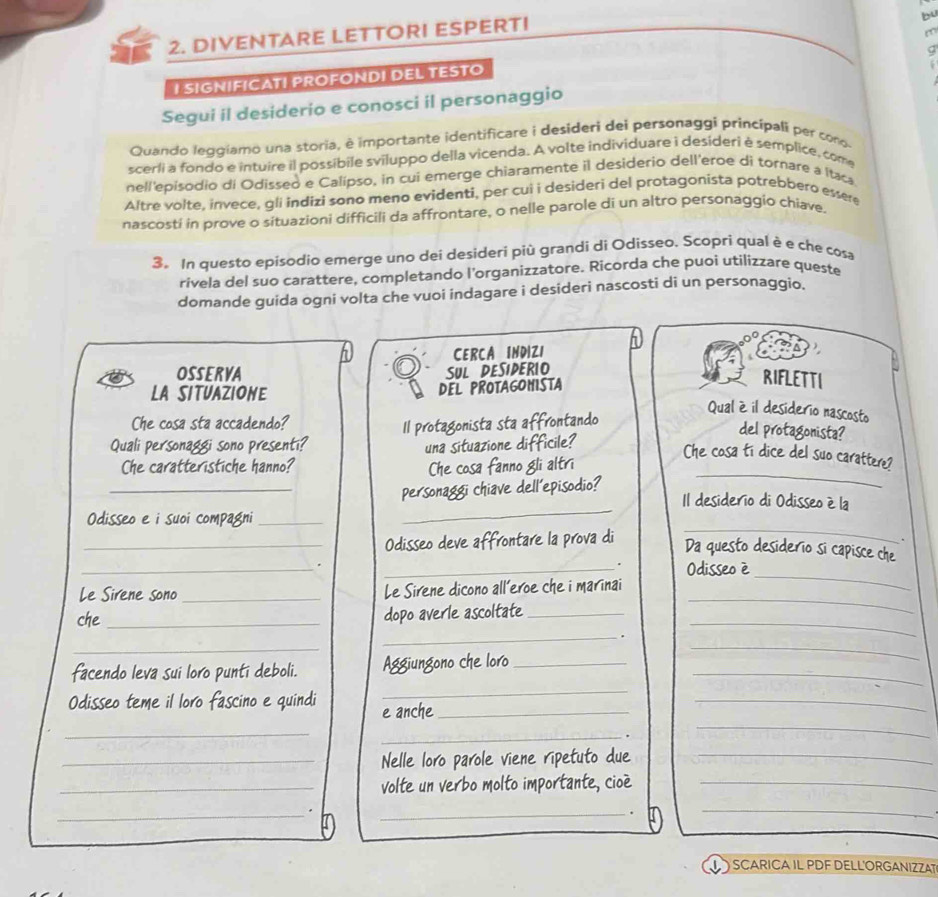 2. DIVENTARE LETTORI ESPERTI
I SIGNIFICATI PROFONDI DEL TESTO
Segui il desiderio e conosci il personaggio
Quando leggiamo una storia, è importante identificare i desideri dei personaggi principali per cono-
scerli a fondo e intuire il possibile sviluppo della vicenda. A volte individuare i desideri è semplice, come
nell'episodio di Odisseo e Calipso, in cui emerge chiaramente il desiderio dell'eroe di tornare a Itaca.
Altre volte, invece, gli indizi sono meno evidenti, per cui i desideri del protagonista potrebbero essere
nascosti in prove o situazioni difficili da affrontare, o nelle parole di un altro personaggio chiave.
3. In questo episodio emerge uno dei desideri più grandi di Odisseo. Scopri qual è e che cosa
rivela del suo carattere, completando l'organizzatore. Ricorda che puoi utilizzare queste
domande guida ogni volta che vuoi indagare i desideri nascosti di un personaggio.
OSSERVA
LA SITUAZIONE
Che cosa sta accadendo?
Quali personaggi sono presenti?
Che caratteristiche hanno?
Odisseo e i suoi compagni
.
Le Sirene sono
che
facendo leva sui loro punti deboli.
Odisseo teme il loro fascino e quindi
.
CERCA INDIZI
SUL DESIDERIO
DEL PROTAGONISTA
Il protagonista sta affrontando
una situazione difficile?
Che cosa fanno gli altri
personaggi chiave dell'episodio?
Odisseo deve affrontare la prova di
.
Le Sirene dicono all'eroe che i marinai
dopo averle ascoltate
.
Aggiungono che loro
e anche
.
Nelle loro parole viene ripetuto due
volte un verbo molto importante, cioè
.
RIFLETTI
Qual è il desiderio nascosto
del protagonista?
Che cosa ti dice del suo carattere?
Il desiderio di Odisseo è la
.
Da questo desiderio si capisce che
Odisseo è
.
SCARICA IL PDF DELL'ORGANIZZAT